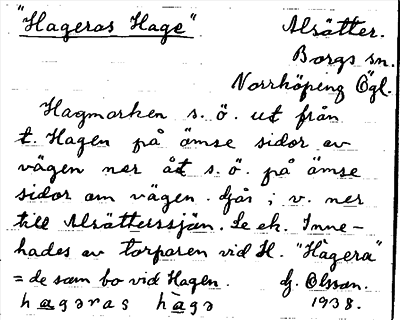 "Hageras Hage"
Alsätter.
Borgs sn.
Norrköping Ögl.
Hagmarken s.ö. ut från
t. Hagen på ömse sidor av
vägen ner åt s.ö. på ömse
sidor om vägen. Går i v. ner
till Alsätterssjön. Le ek. Inne-
hades av torparen vid H. "Hàgera"
= de som bo vid Hagen. G. Olsson.
hagəras hàgə 1938.